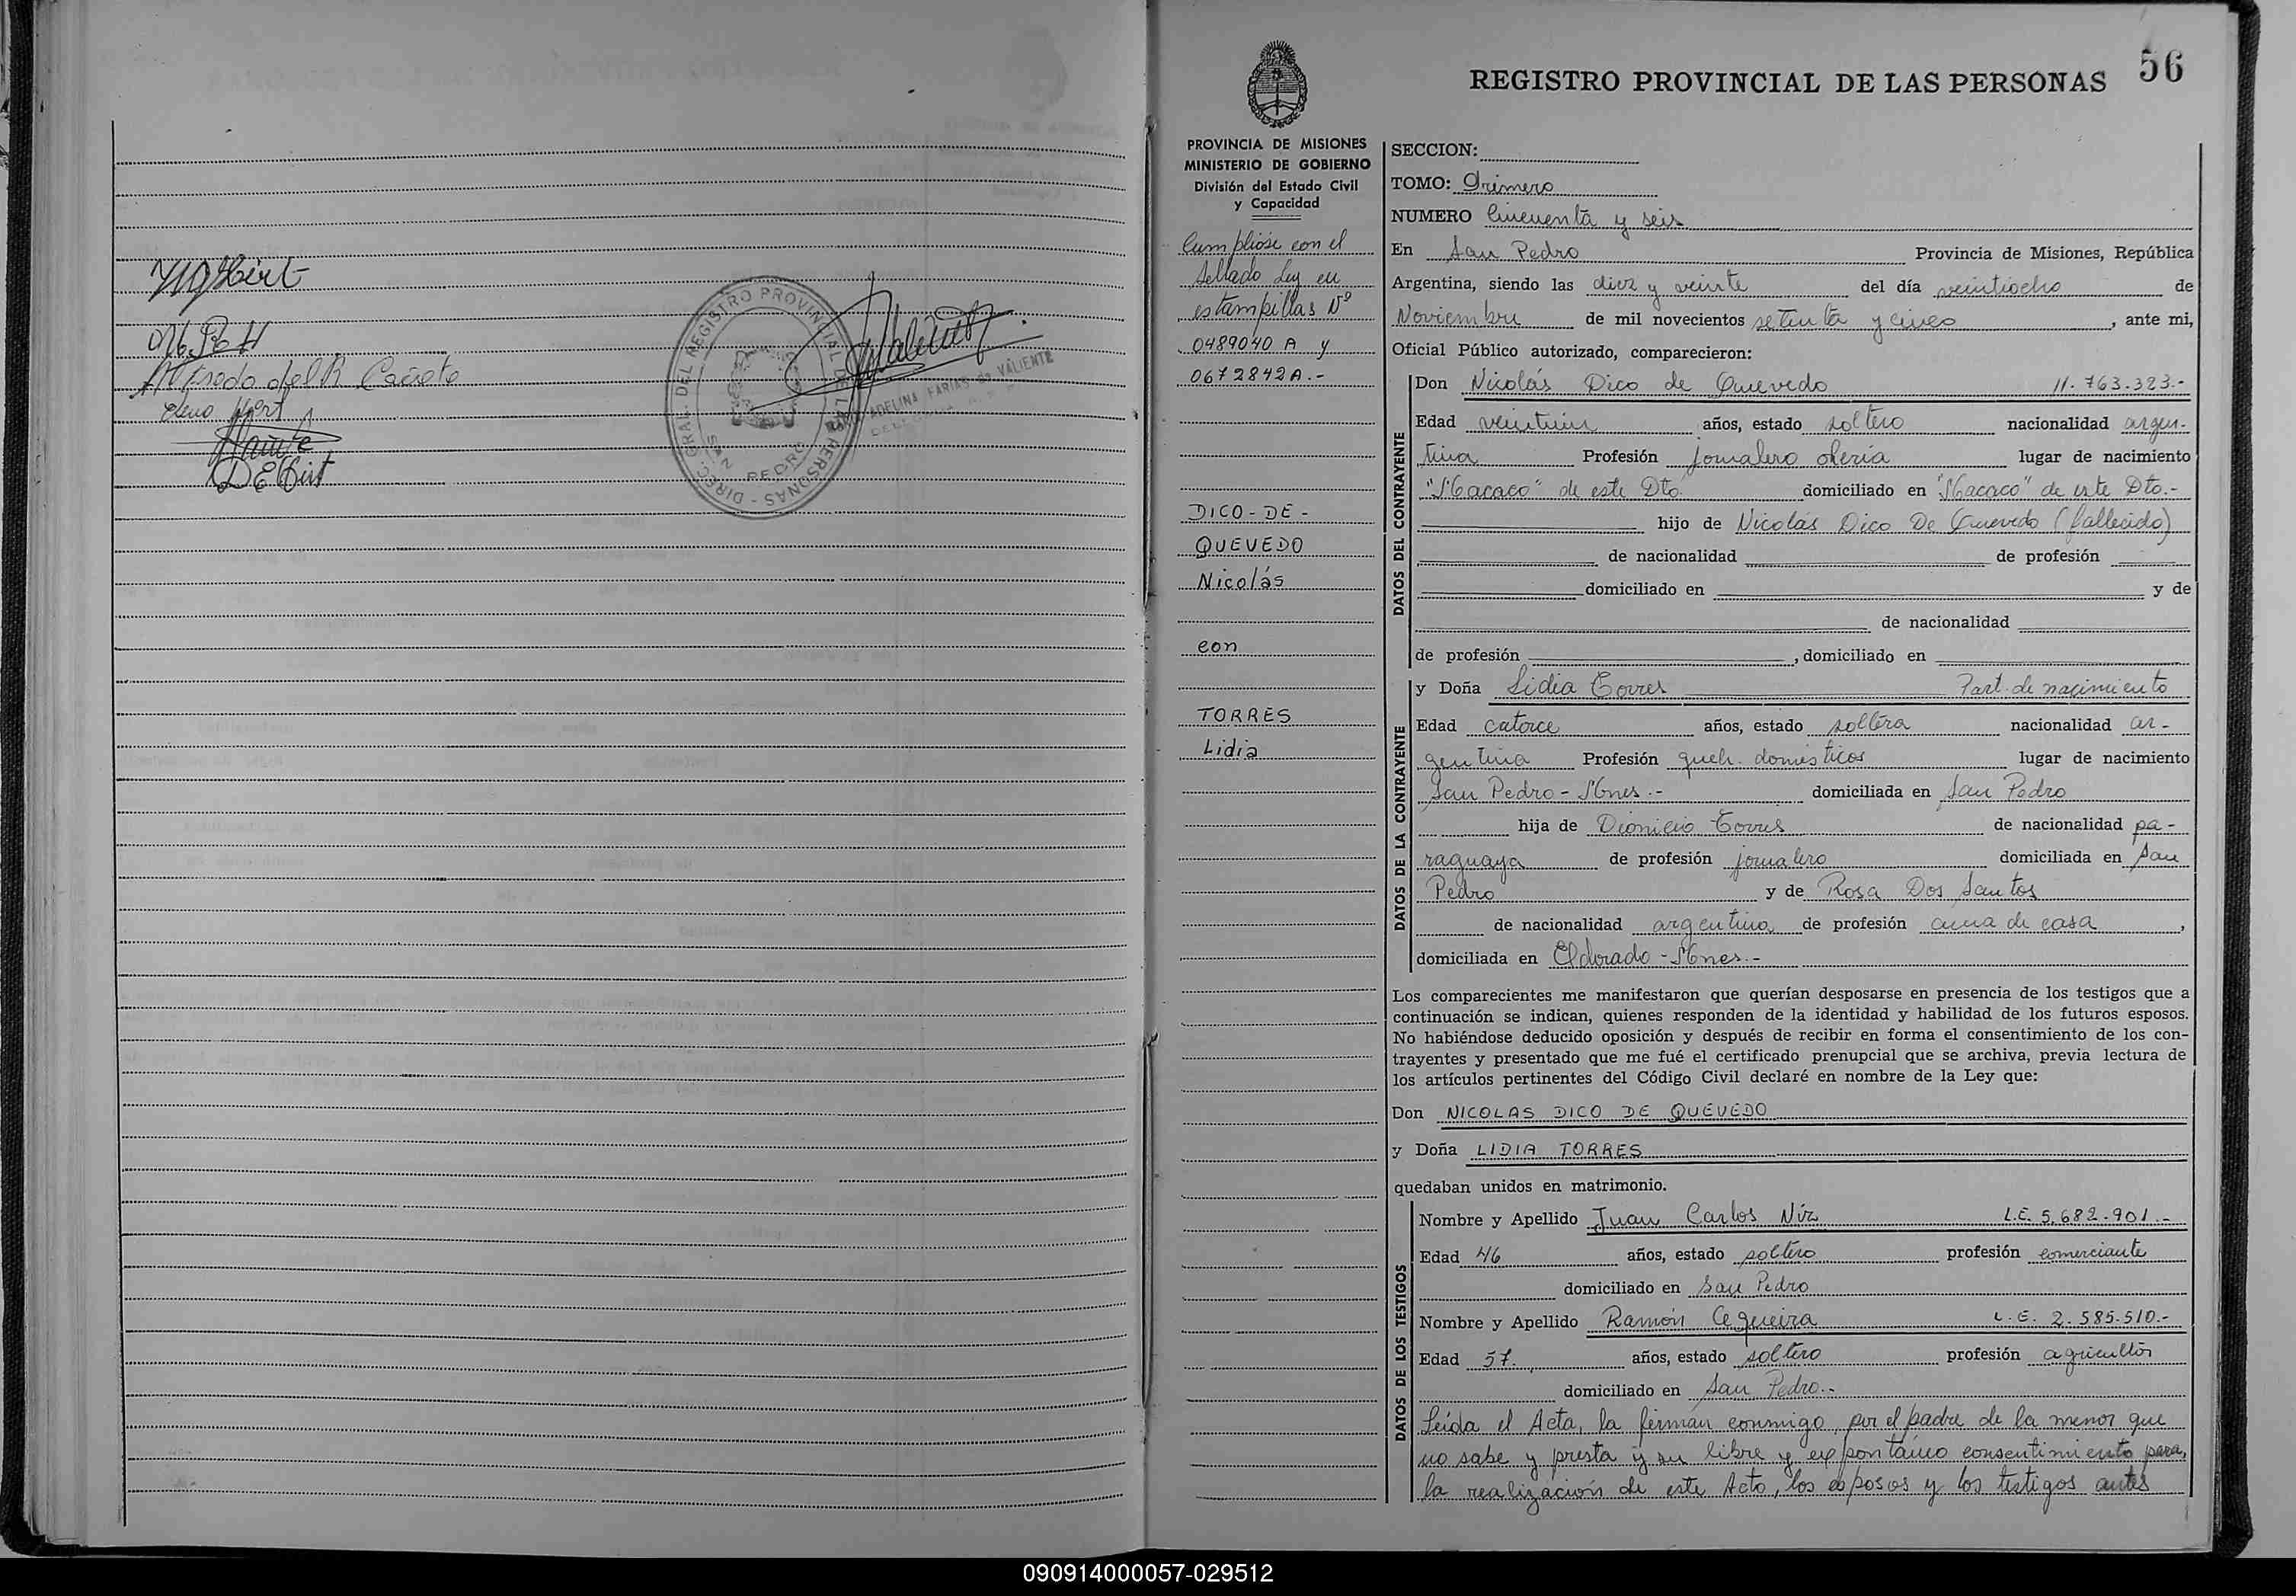 Alfredo del R Cañete
Elena Hirt
DIREC. GRAL. DEL REGISTRO PROVINCIAL DE LAS PERSONAS -
SAN PEDRO
ADELINA FARIAS de VALIENTE
56
REGISTRO PROVINCIAL DE LAS PERSONAS
PROVINCIA DE MISIONES
MINISTERIO DE GOBIERNO
División del Estado Civil
y Capacidad
Cumplióse con el
sellado Ley en
estampillas Nº
0489040 A y
0672842A.-
DICO-DE-
QUEVEDO
Nicolás
con
TORRES
Lidia
SECCION:
TOMO: Primero
NUMERO Cincuenta y seis
En San Pedro Provincia de Misiones, República
Argentina, siendo las diez y veinte del día veintiocho de
Noviembre de mil novecientos setenta y cinco, ante mi,
Oficial Público autorizado, comparecieron:
DATOS DEL CONTRAYENTE
Don Nicolás Dico de Quevedo 11.763.323.-
Edad veintiun años, estado soltero nacionalidad argen-
tina Profesión jornalero olería lugar de nacimiento
"Macaco" de este Dto. domiciliado en "Macaco" de este Dto.-
hijo de Nicolás Dico De Quevedo (fallecido)
de nacionalidad de profesión
domiciliado en y de
de nacionalidad
de profesión , domiciliado en
DATOS DE LA CONTRAYENTE
y Doña Lidia Torres Part. de nacimiento
Edad catorce años, estado soltera nacionalidad ar-
gentina Profesión queh. domésticos lugar de nacimiento
San Pedro - Mnes.- domiciliada en San Pedro
hija de Dionicio Torres de nacionalidad pa-
raguaya de profesión jornalero domiciliada en San
Pedro y de Rosa Dos Santos
de nacionalidad argentina de profesión ama de casa,
domiciliada en Eldorado - Mnes.-
Los comparecientes me manifestaron que querían desposarse en presencia de los testigos que a
continuación se indican, quienes responden de la identidad y habilidad de los futuros esposos.
No habiéndose deducido oposición y después de recibir en forma el consentimiento de los con-
trayentes y presentado que me fué el certificado prenupcial que se archiva, previa lectura de
los artículos pertinentes del Código Civil declaré en nombre de la Ley que:
Don NICOLAS DICO DE QUEVEDO
y Doña LIDIA TORRES
quedaban unidos en matrimonio.
DATOS DE LOS TESTIGOS
Nombre y Apellido Juan Carlos Niz L.E. 5.682.901.-
Edad 46 años, estado soltero profesión comerciante
domiciliado en San Pedro
Nombre y Apellido Ramón Cequeira L.E. 2.585.510.-
Edad 57. años, estado soltero profesión agricultor
domiciliado en San Pedro.-
Leída el Acta, la firman conmigo, por el padre de la menor que
no sabe y presta y su libre y expontáneo consentimiento para
la realización de este Acto, los esposos y los testigos antes
090914000057-029512